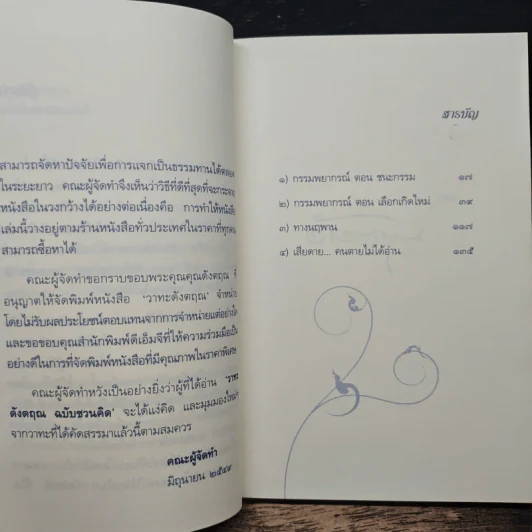 สามารถจัดหาปัจจัยเพื่อการแจกเป็นธรรมทานได้ตลอด
ในระยะยาว คณะผู้จัดทำจึงเห็นว่าวิธีที่ดีที่สุดที่จะกระจาย
หนังสือในวงกว้างได้อย่างต่อเนื่องคือ การทำให้หนังสือ
เล่มนี้วางอยู่ตามร้านหนังสือทั่วประเทศในราคาที่ทุกคน
สามารถซื้อหาได้
คณะผู้จัดทำขอกราบขอบพระคุณคุณดังตฤณ ที่
อนุญาตให้จัดพิมพ์หนังสือ 'วาทะดังตฤณ' จำหน่าย
โดยไม่รับผลประโยชน์ตอบแทนจากการจำหน่ายแต่อย่างใด
และขอขอบคุณสำนักพิมพ์ดีเอ็มจีที่ให้ความร่วมมือเป็น
อย่างดีในการที่จัดพิมพ์หนังสือที่มีคุณภาพในราคาพิเศษ
คณะผู้จัดทำหวังเป็นอย่างยิ่งว่าผู้ที่ได้อ่าน 'วาทะ
ดังตฤณ ฉบับชวนคิด' จะได้แง่คิด และมุมมอง
จากวาทะที่ได้คัดสรรมาแล้วนี้ตามสมควร
คณะผู้จัดทำ
มิถุนายน ๒๕๔๙
สารบัญ
๑) กรรมพยากรณ์ ตอน ชนะกรรม ๑๗
๒) กรรมพยากรณ์ ตอน เลือกเกิดใหม่ ๓๙
๓) ทางนฤพาน ๑๑๗
๔) เสียดาย... คนตายไม่ได้อ่าน ๑๓๕